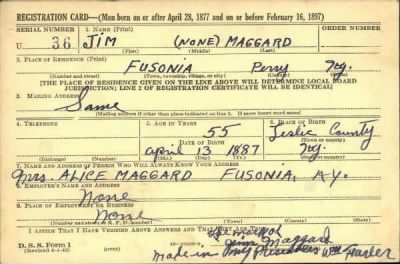 REGISTRATION CARD—(Men born on or after April 28, 1877 and on or before February 16, 1897)
SERIAL NUMBER 1. NAME (Print) ORDER NUMBER
U 36 JIM (NONE) MAGGARD
(First) (Middle) (Last)
2. PLACE OF RESIDENCE (Print)
FUSONIA Perry Ky.
(Number and street) (Town, township, village, or city) (County) (State)
[THE PLACE OF RESIDENCE GIVEN ON THE LINE ABOVE WILL DETERMINE LOCAL BOARD
JURISDICTION; LINE 2 OF REGISTRATION CERTIFICATE WILL BE IDENTICAL]
3. MAILING ADDRESS
Same
[Mailing address if other than place indicated on line 2. If same insert word same]
4. TELEPHONE 5. AGE IN YEARS 6. PLACE OF BIRTH
55 Leslie County
DATE OF BIRTH (Town or county)
April 13 1887 Ky.
(Exchange) (Number) (Mo.) (Day) (Yr.) (State or country)
7. NAME AND ADDRESS OF PERSON WHO WILL ALWAYS KNOW YOUR ADDRESS
Mrs. ALICE MAGGARD FUSONIA, KY.
8. EMPLOYER'S NAME AND ADDRESS
None
9. PLACE OF EMPLOYMENT OR BUSINESS
None
(Number and street or R. F. D. number) (Town) (County) (State)
I AFFIRM THAT I HAVE VERIFIED ABOVE ANSWERS AND THAT THEY ARE TRUE.
D. S. S. Form 1 Jim Maggard
(Revised 4-1-42) made in